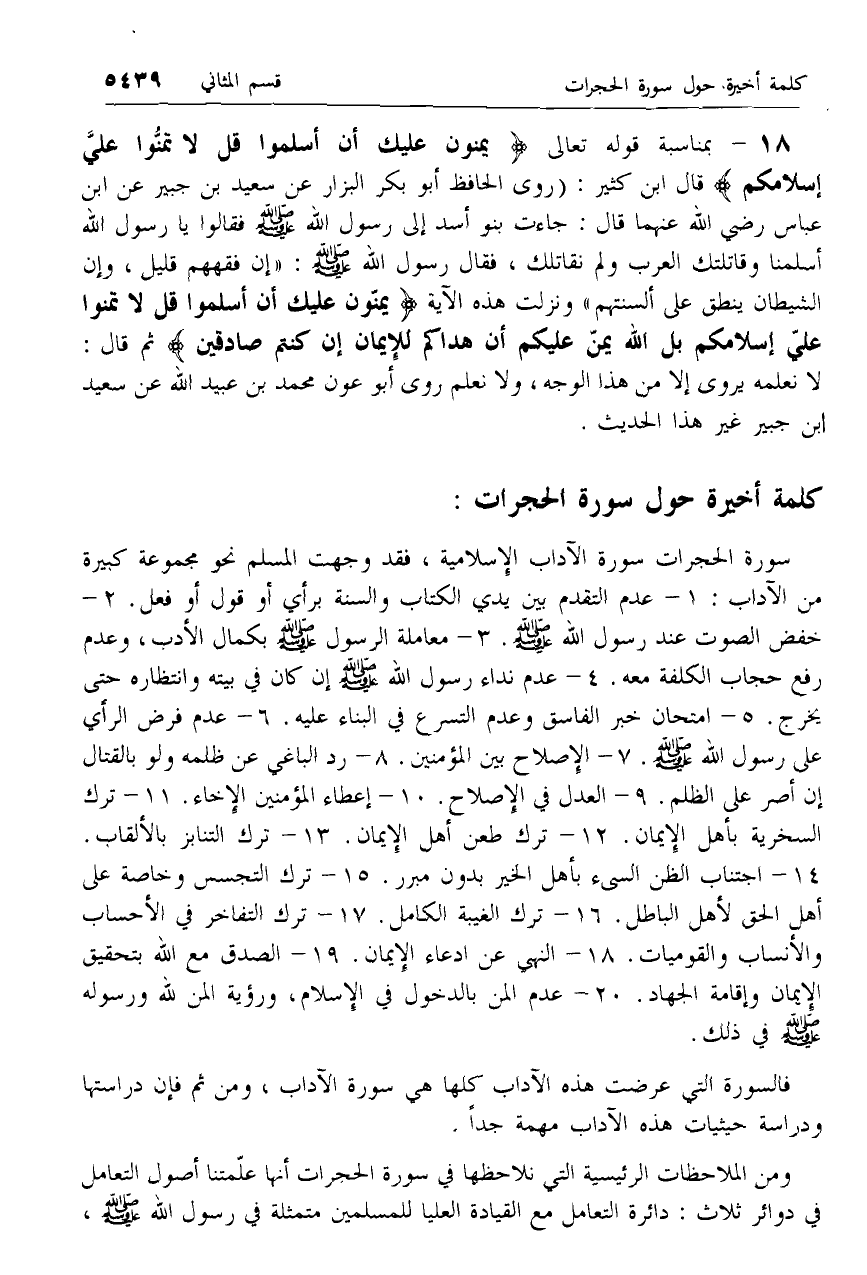 كلمة أخيرة، حول سورة الحجرات قسم المثاني ٥٤٣٩
١٨ – بمناسبة قوله تعالى ﴿ يمنون عليك أن أسلموا قل لا تمنُّوا عليَّ
إسلامكم ﴾ قال ابن كثير : (روى الحافظ أبو بكر البزار عن سعيد بن جبير عن ابن
عباس رضي الله عنهما قال : جاءت بنو أسد إلى رسول الله ﷺ فقالوا يا رسول الله
أسلمنا وقاتلتك العرب ولم نقاتلك ، فقال رسول الله ﷺ : «إن فقههم قليل ، وإن
الشيطان ينطق على ألسنتهم» ونزلت هذه الآية ﴿ يمنّون عليك أن أسلموا قل لا تمنوا
عليّ إسلامكم بل الله يمنّ عليكم أن هداكم للإيمان إن كنتم صادقين ﴾ ثم قال :
لا نعلمه يروى إلا من هذا الوجه ، ولا نعلم روى أبو عون محمد بن عبيد الله عن سعيد
ابن جبير غير هذا الحديث .
كلمة أخيرة حول سورة الحجرات :
سورة الحجرات سورة الآداب الإسلامية ، فقد وجهت المسلم نحو مجموعة كبيرة
من الآداب : ١ – عدم التقدم بين يدي الكتاب والسنة برأي أو قول أو فعل. ٢ –
خفض الصوت عند رسول الله ﷺ . ٣ – معاملة الرسول ﷺ بكمال الأدب، وعدم
رفع حجاب الكلفة معه. ٤ – عدم نداء رسول الله ﷺ إن كان في بيته وانتظاره حتى
يخرج. ٥ – امتحان خبر الفاسق وعدم التسرع في البناء عليه. ٦ – عدم فرض الرأي
على رسول الله ﷺ . ٧ – الإصلاح بين المؤمنين. ٨ – رد الباغي عن ظلمه ولو بالقتال
إن أصر على الظلم. ٩ – العدل في الإصلاح. ١٠ – إعطاء المؤمنين الإخاء. ١١ – ترك
السخرية بأهل الإيمان. ١٢ – ترك طعن أهل الإيمان. ١٣ – ترك التنابز بالألقاب.
١٤ – اجتناب الظن السيء بأهل الخير بدون مبرر. ١٥ – ترك التجسس وخاصة على
أهل الحق لأهل الباطل. ١٦ – ترك الغيبة الكامل. ١٧ – ترك التفاخر في الأحساب
والأنساب والقوميات. ١٨ – النهي عن ادعاء الإيمان. ١٩ – الصدق مع الله بتحقيق
الإيمان وإقامة الجهاد. ٢٠ – عدم المن بالدخول في الإسلام، ورؤية المن لله ورسوله
ﷺ في ذلك.
فالسورة التي عرضت هذه الآداب كلها هي سورة الآداب ، ومن ثم فإن دراستها
ودراسة حيثيات هذه الآداب مهمة جداً .
ومن الملاحظات الرئيسية التي نلاحظها في سورة الحجرات أنها علّمتنا أصول التعامل
في دوائر ثلاث : دائرة التعامل مع القيادة العليا للمسلمين متمثلة في رسول الله ﷺ ،